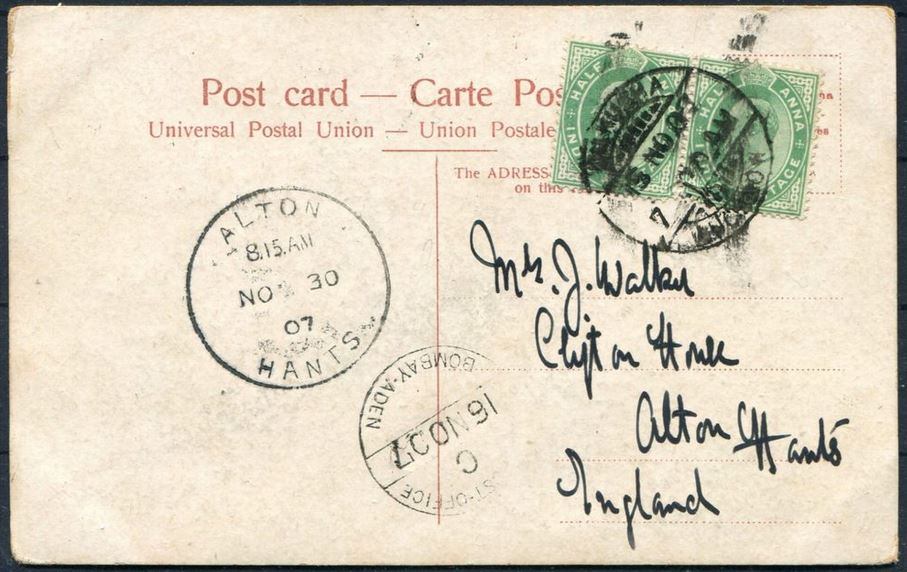 Post card — Carte Pos
Universal Postal Union — Union Postale
The ADRESS
on this
HALF ANNA
HALF ANNA
POSTAGE
NO 07
AM
7
ALTON
8.15.AM
NO 30
07
HANTS
BOMBAY-ADEN
16 NO 07
C
ST-OFFICE
Mrs. J. Walker
Clifton House
Alton Hants
England